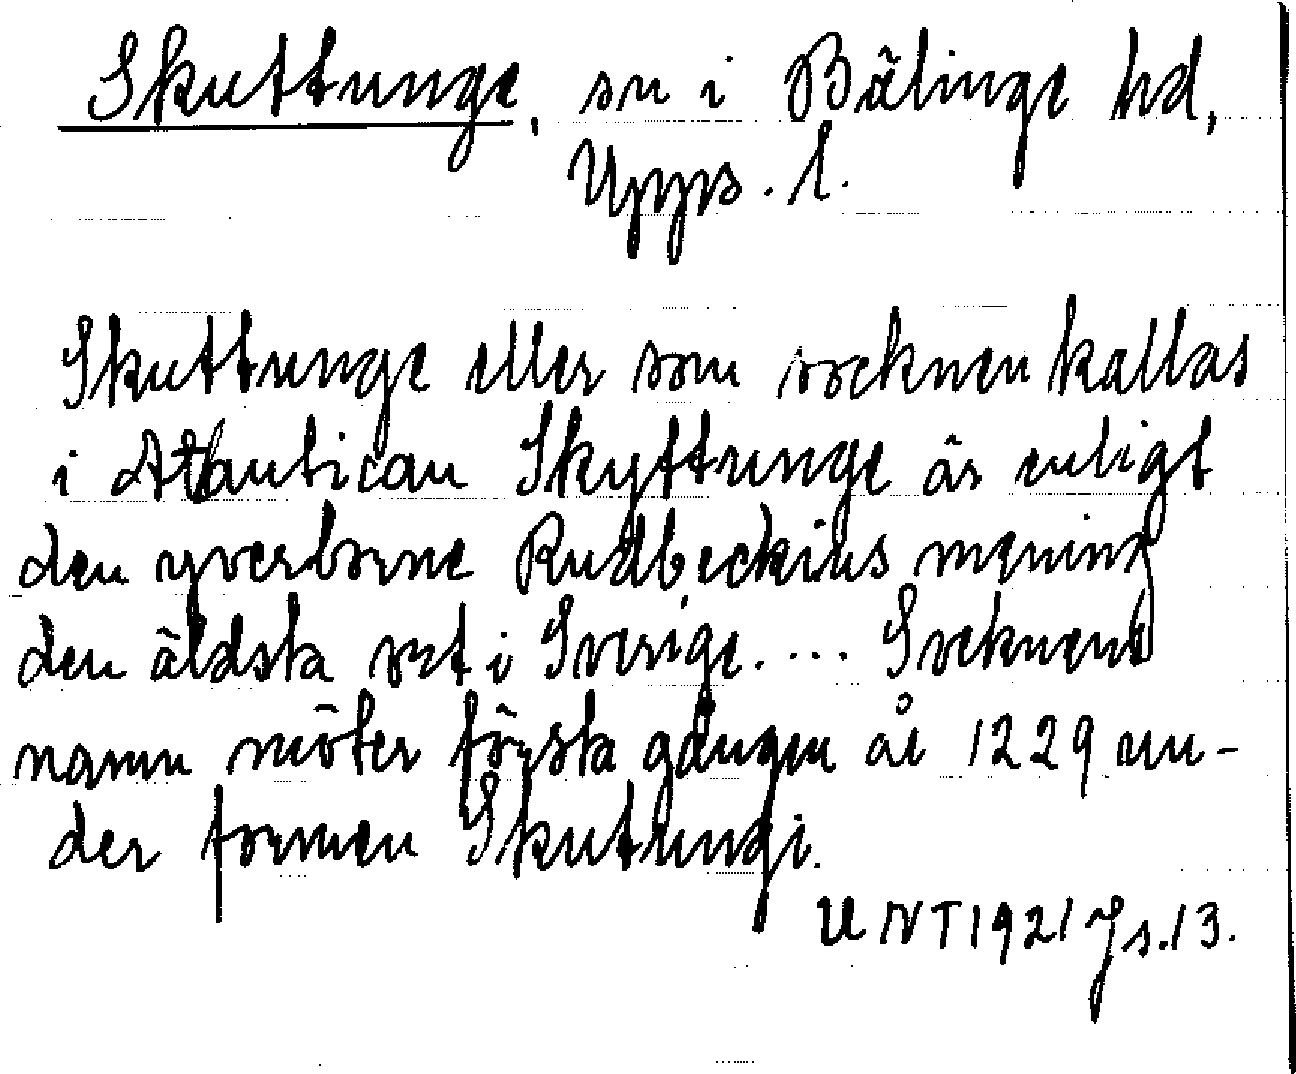 Skuttunge, sn i Bälinge hd,
Upps. l.
Skuttunge eller som socknen kallas
i Atlantican Skyttunge är enligt
den yverborne Rudbeckius mening
den äldsta ort i Sverige. ... Socknens
namn möter första gången år 1229 un-
der formen Skutungi.
UNT 1921 s. 13.